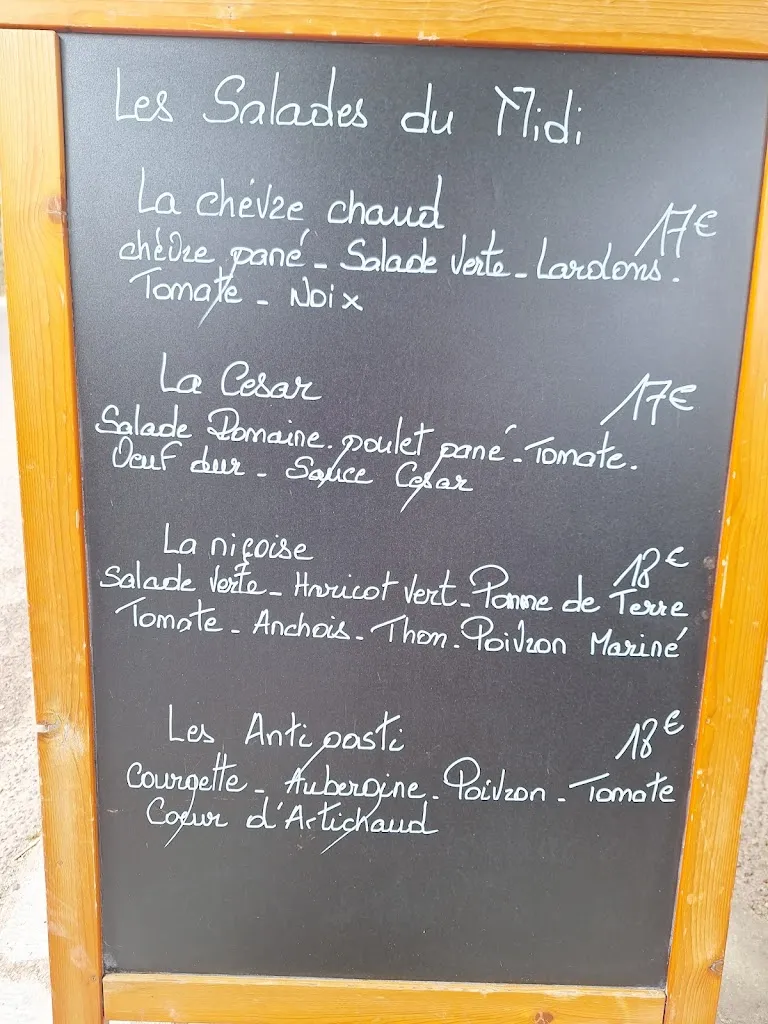 Les Salades du Midi
La chévre chaud 17€
chèvre pané - Salade Verte - Lardons.
Tomate - Noix
La Cesar 17€
Salade Romaine. poulet pané - Tomate.
Oeuf dur - Sauce Cesar
La niçoise 18€
Salade Verte - Haricot Vert - Pomme de Terre
Tomate - Anchois - Thon. Poivron Mariné
Les Anti pasti 18€
Courgette - Aubergine - Poivron - Tomate
Coeur d'Artichaud